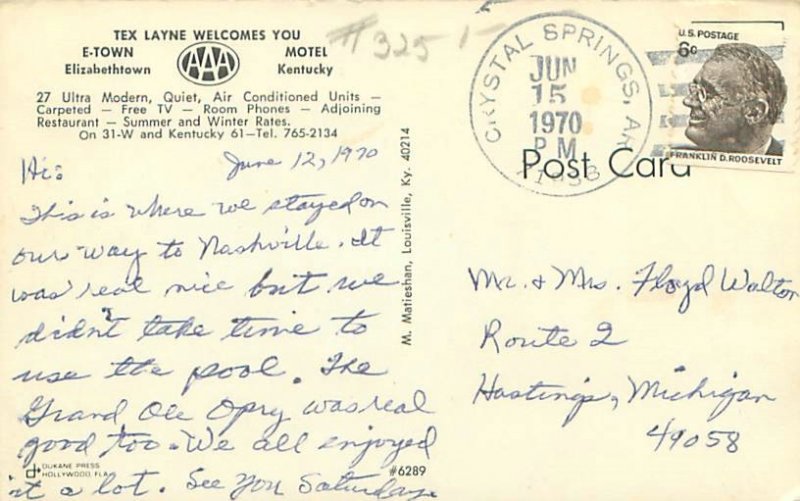 TEX LAYNE WELCOMES YOU
E-TOWN AAA MOTEL
Elizabethtown Kentucky
27 Ultra Modern, Quiet, Air Conditioned Units —
Carpeted — Free TV — Room Phones — Adjoining
Restaurant — Summer and Winter Rates.
On 31-W and Kentucky 61—Tel. 765-2134
#325
June 12, 1970
Hi:
This is where we stayed on
our way to Nashville. It
was real nice but we
didn't take time to
use the pool. The
Grand Ole Opry was real
good too. We all enjoyed
it a lot. See You Saturday
DUKANE PRESS
HOLLYWOOD, FLA.
#6289
M. Matieshan, Louisville, Ky. 40214
CRYSTAL SPRINGS, AR
JUN
15
1970
P M
71933
U.S. POSTAGE
6¢
FRANKLIN D. ROOSEVELT
Post Card
Mr. & Mrs. Floyd Walton
Route 2
Hastings, Michigan
49058